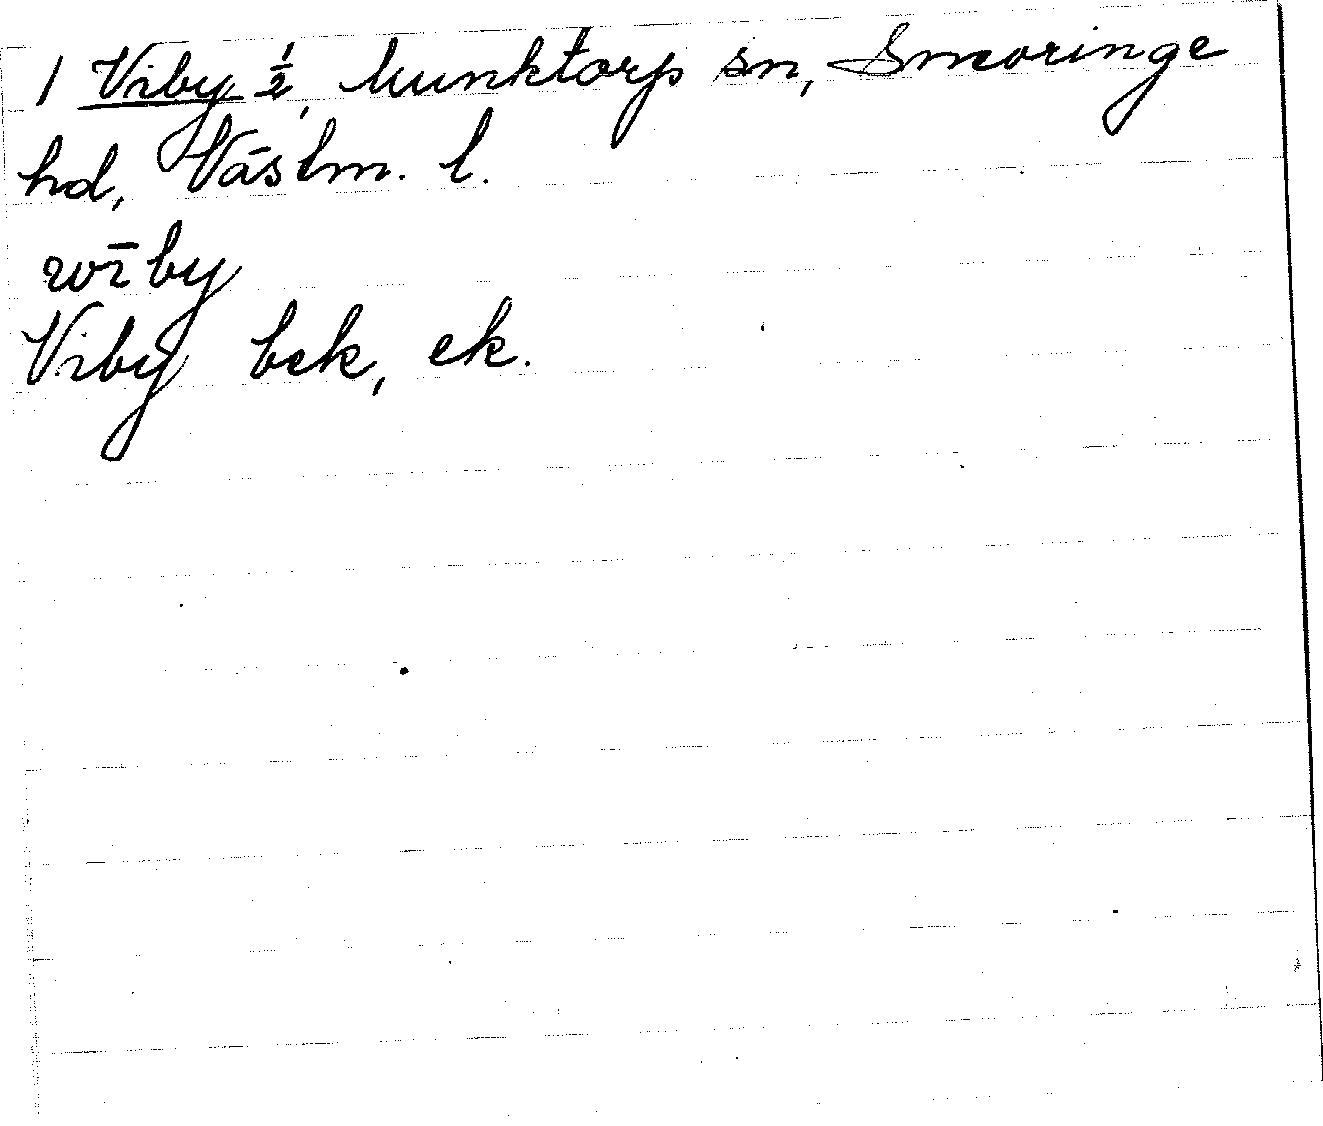 1 Viby ½, Munktorp sn, Snevringe
hd, Västm. l.
vīby
Viby bek, ek.